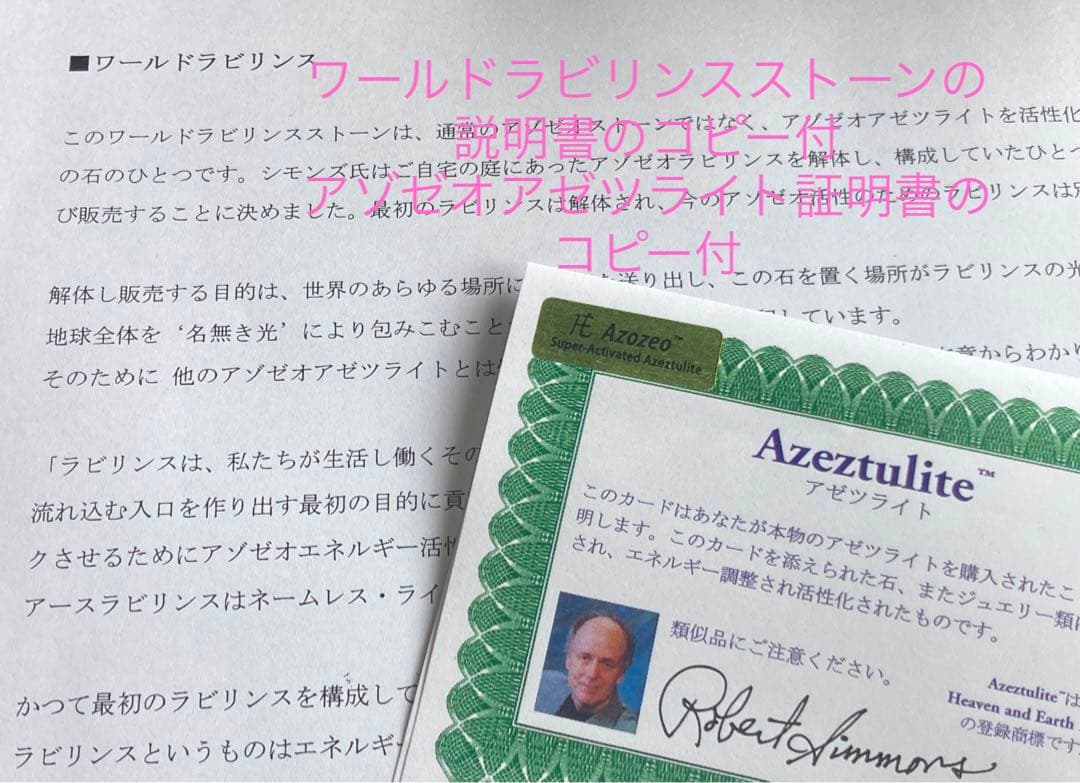 ■ワールドラビリンス
ワールドラビリンスストーンの
説明書のコピー付
アゾゼオアゼツライト証明書の
コピー付
このワールドラビリンスストーンは、通常のアゾゼオストーンではなく、アゾゼオアゼツライトを活性化
の石のひとつです。シモンズ氏はご自宅の庭にあったアゾゼオラビリンスを解体し、構成していたひとつ
び販売することに決めました。最初のラビリンスは解体され、今のアゾゼオ活性のためのラビリンスは別
解体し販売する目的は、世界のあらゆる場所に 送り出し、この石を置く場所がラビリンスの光
地球全体を‘名無き光’により包みこむこと しています。
そのために 他のアゾゼオアゼツライトとは からわかり
「ラビリンスは、私たちが生活し働くその
流れ込む入口を作り出す最初の目的に貢
クさせるためにアゾゼオエネルギー活性
アースラビリンスはネームレス・ライ
かつて最初のラビリンスを構成して
ラビリンスというものはエネルギ
HE Azozeo™
Super-Activated Azeztulite
Azeztulite™
アゼツライト
このカードはあなたが本物のアゼツライトを購入されたこ
明します。このカードを添えられた石、またジュエリー類は
され、エネルギー調整され活性化されたものです。
類似品にご注意ください。
Robert Simmons
Azeztulite™は
Heaven and Earth
の登録商標です